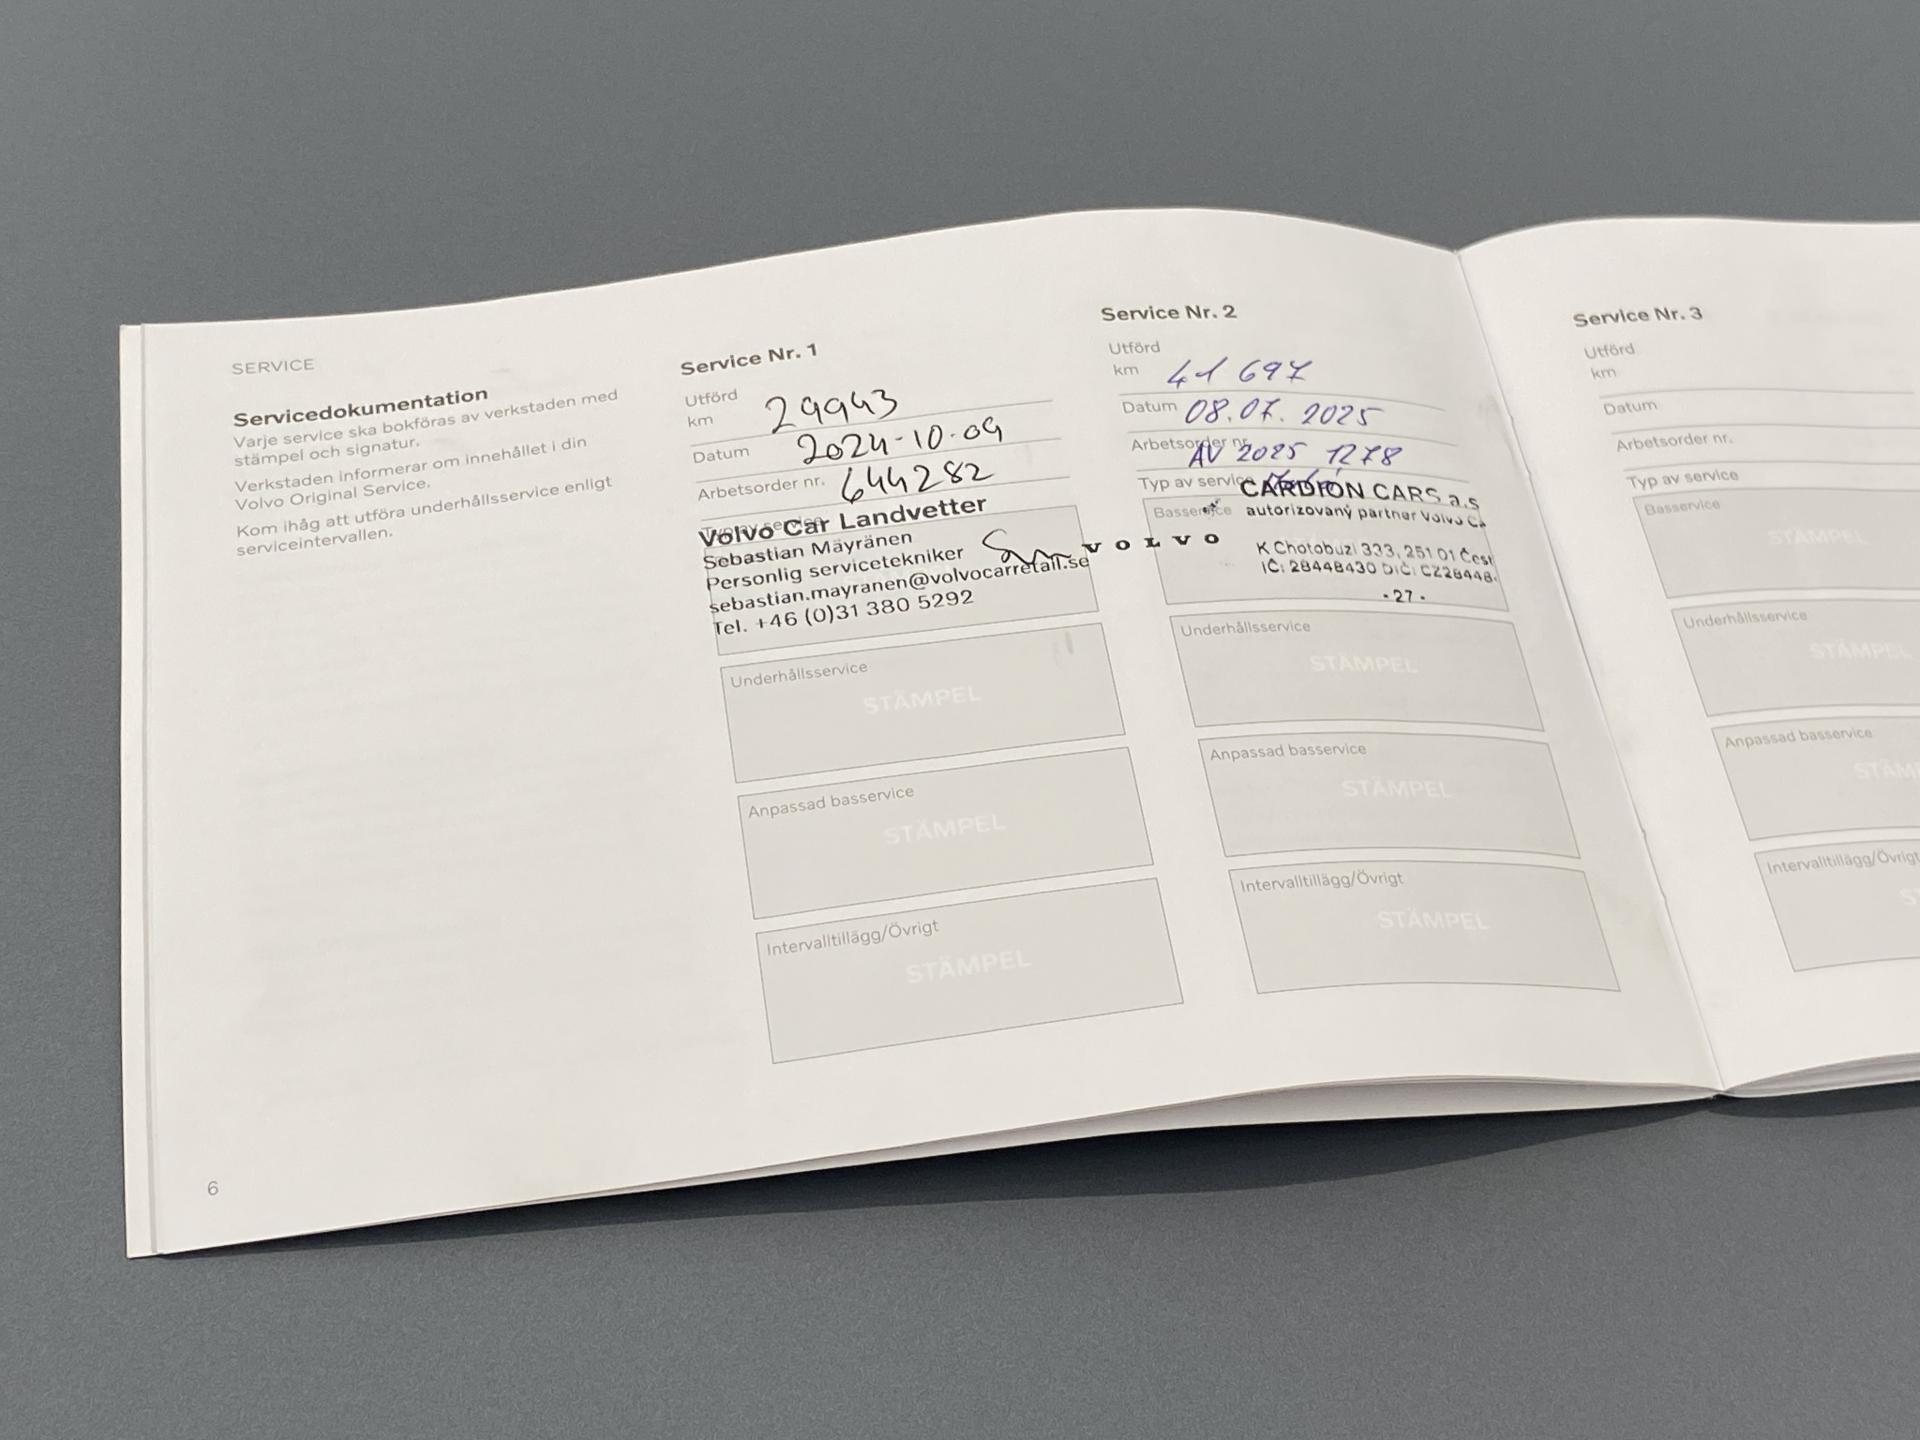 SERVICE
Servicedokumentation
Varje service ska bokföras av verkstaden med
stämpel och signatur.
Verkstaden informerar om innehållet i din
Volvo Original Service.
Kom ihåg att utföra underhållsservice enligt
serviceintervallen.
6
Service Nr. 1
Utförd
km 29943
Datum 2024-10-09
Arbetsorder nr. 644282
Typ av service
Volvo Car Landvetter
Sebastian Mäyränen
Personlig servicetekniker
sebastian.mayranen@volvocarretail.se
Tel. +46 (0)31 380 5292
Underhållsservice
STÄMPEL
Anpassad basservice
STÄMPEL
Intervalltillägg/Övrigt
STÄMPEL
Service Nr. 2
Utförd
km 41 697
Datum 08.07. 2025
Arbetsorder nr.
AV 2025 1278
Typ av service
Basservice
CARDION CARS a.s
autorizovaný partner Volvo
VOLVO
K Chotobuzi 333, 251 01
IČ: 28448430 DIČ: CZ28448
-27-
Underhållsservice
STÄMPEL
Anpassad basservice
STÄMPEL
Intervalltillägg/Övrigt
STÄMPEL
Service Nr. 3
Utförd
km
Datum
Arbetsorder nr.
Typ av service
Basservice
STÄMPEL
Underhållsservice
STÄMPEL
Anpassad basservice
Intervalltillägg/Övrigt